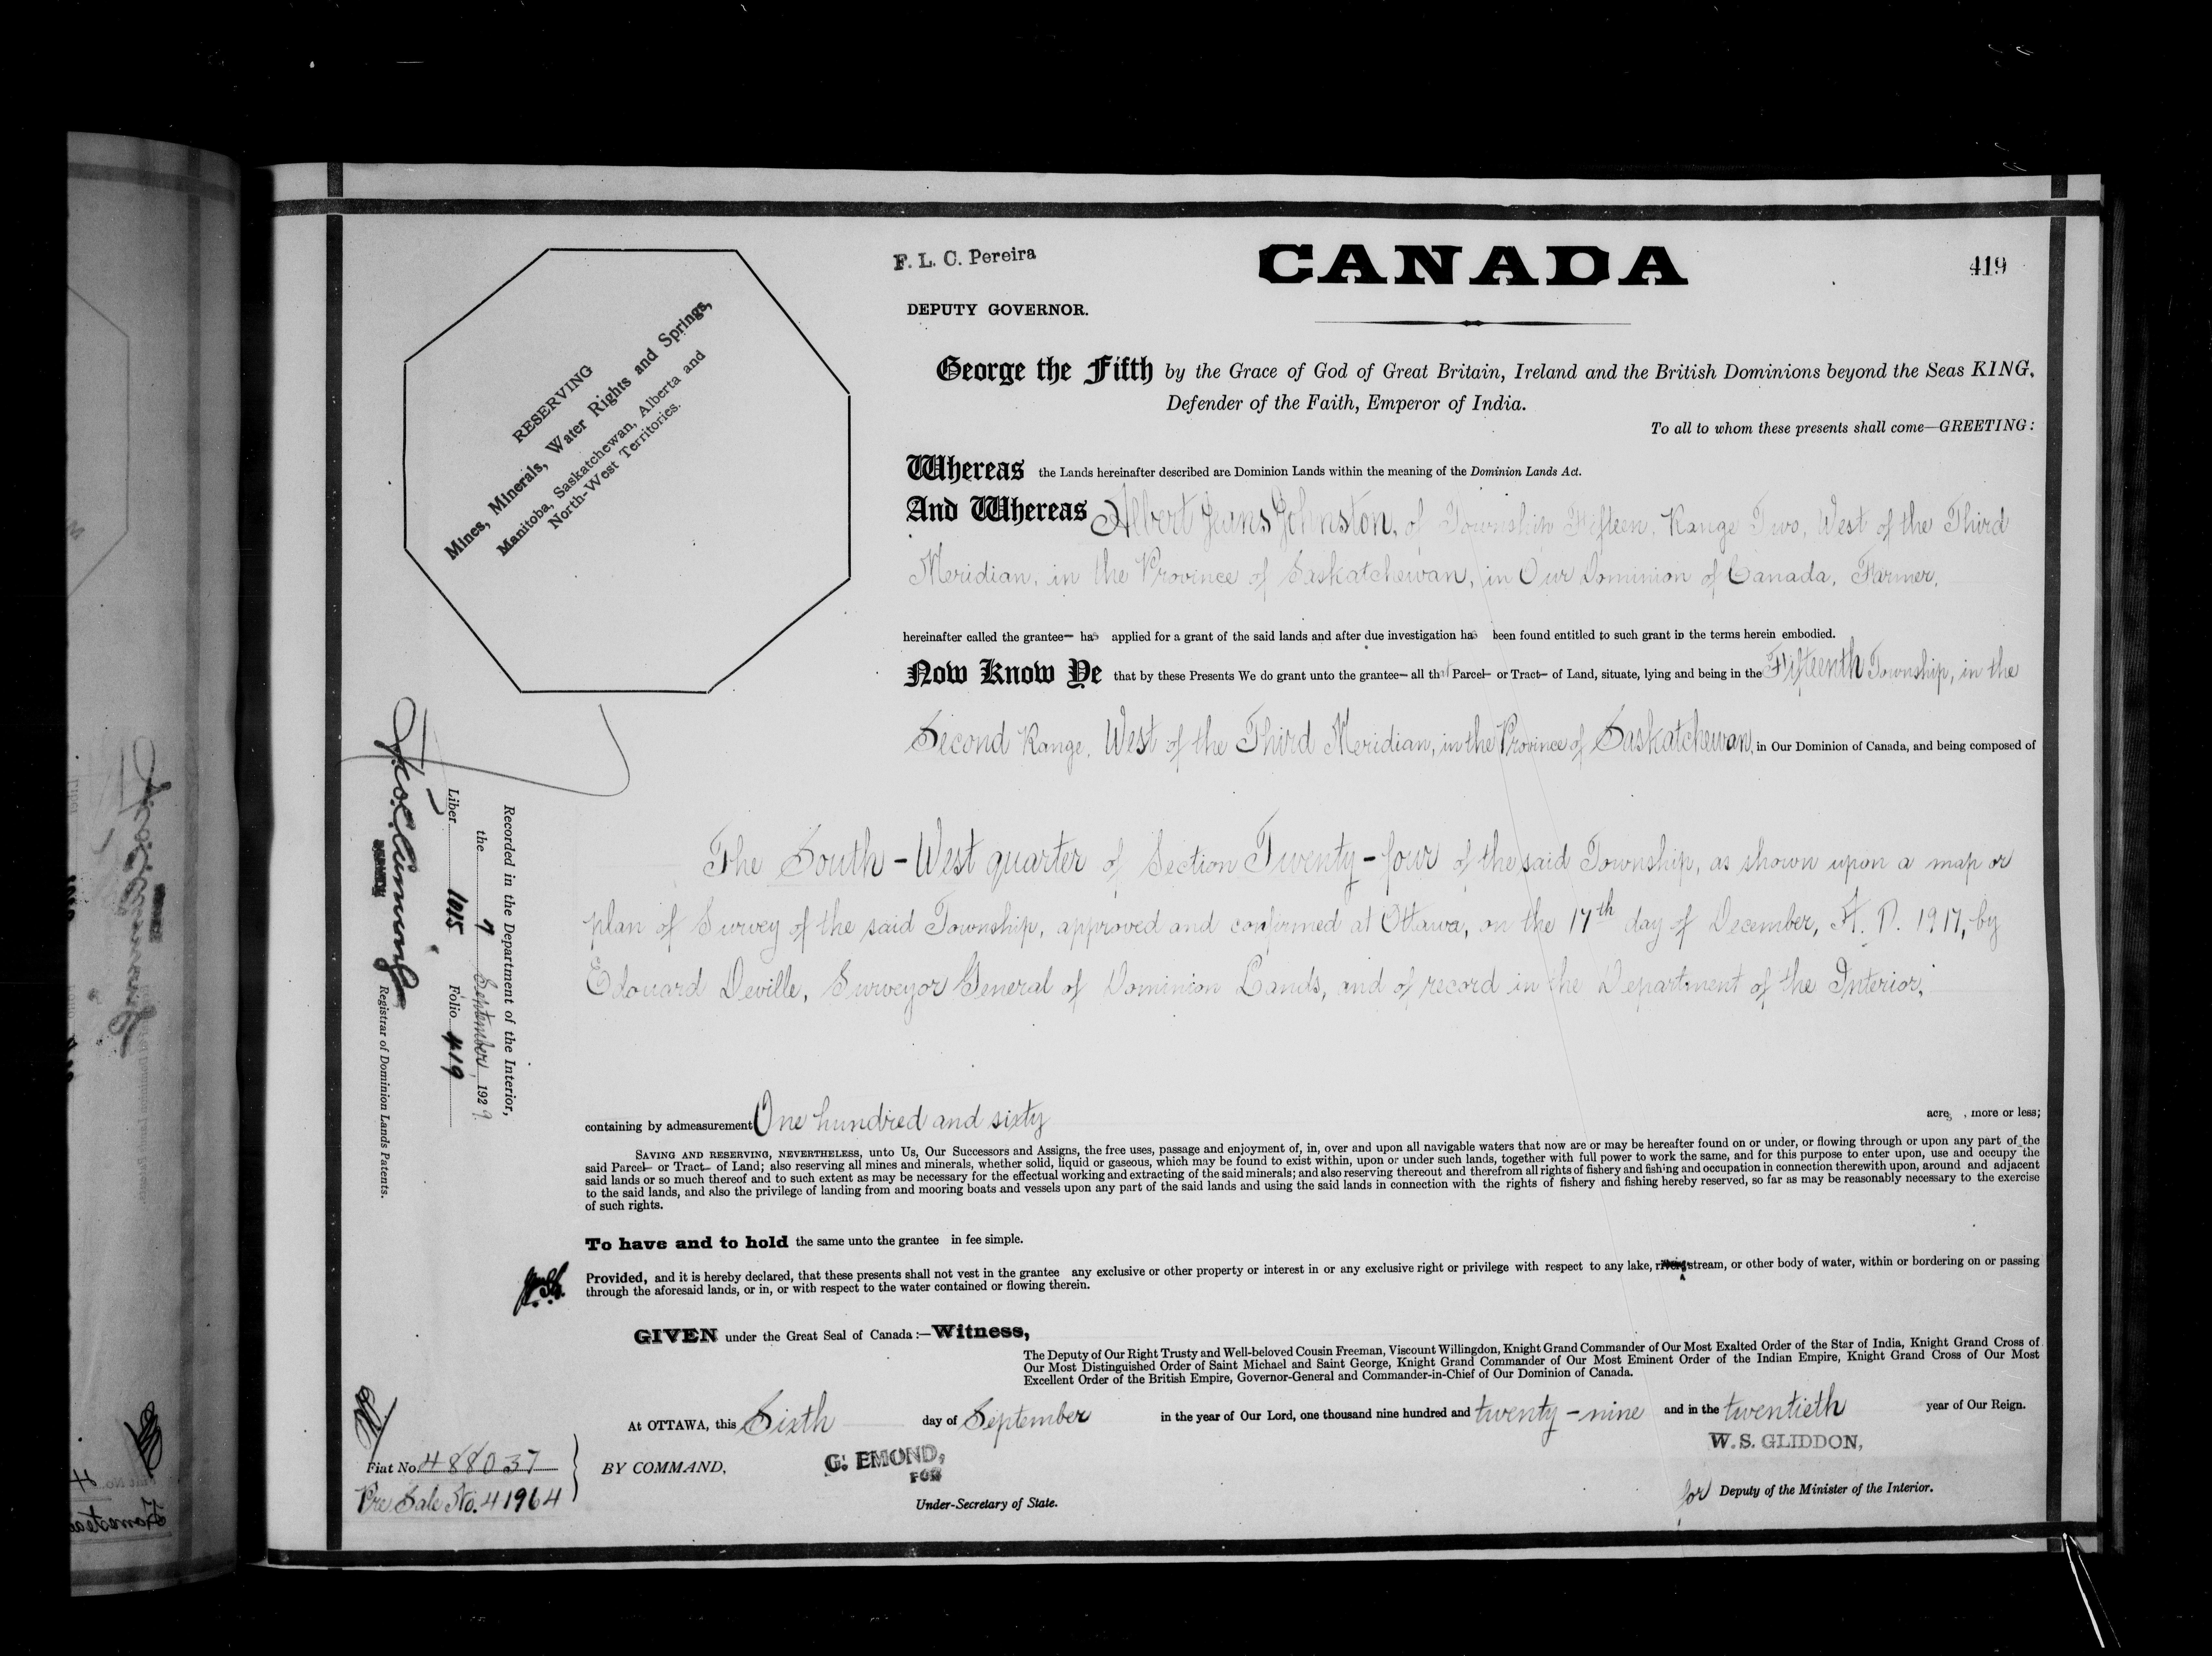 F. L. C. Pereira
CANADA
419
DEPUTY GOVERNOR.
RESERVING
Mines, Minerals, Water Rights and Springs,
Manitoba, Saskatchewan, Alberta and
North-West Territories.
George the Fifth by the Grace of God of Great Britain, Ireland and the British Dominions beyond the Seas KING,
Defender of the Faith, Emperor of India.
To all to whom these presents shall come—GREETING:
Whereas the Lands hereinafter described are Dominion Lands within the meaning of the Dominion Lands Act.
And Whereas Albert Johnston, of Township Fifteen, Range Two, West of the Third
Meridian, in the Province of Saskatchewan, in Our Dominion of Canada, Farmer,
hereinafter called the grantee— has applied for a grant of the said lands and after due investigation has been found entitled to such grant in the terms herein embodied.
Now Know Ye that by these Presents We do grant unto the grantee— all that Parcel— or Tract— of Land, situate, lying and being in the Fifteenth Township, in the
Second Range, West of the Third Meridian, in the Province of Saskatchewan, in Our Dominion of Canada, and being composed of
The South-West quarter of Section Twenty-four of the said Township, as shown upon a map or
plan of Survey of the said Township, approved and confirmed at Ottawa, on the 17th day of December, A. D. 1917, by
Edouard Deville, Surveyor General of Dominion Lands, and of record in the Department of the Interior,
Recorded in the Department of the Interior,
the 7 September, 1929.
Liber 1015 Folio 419
Registrar of Dominion Lands Patents.
containing by admeasurement One hundred and sixty acres, more or less;
SAVING AND RESERVING, NEVERTHELESS, unto Us, Our Successors and Assigns, the free uses, passage and enjoyment of, in, over and upon all navigable waters that now are or may be hereafter found on or under, or flowing through or upon any part of the
said Parcel— or Tract— of Land; also reserving all mines and minerals, whether solid, liquid or gaseous, which may be found to exist within, upon or under such lands, together with full power to work the same, and for this purpose to enter upon, use and occupy the
said lands or so much thereof and to such extent as may be necessary for the effectual working and extracting of the said minerals; and also reserving thereout and therefrom all rights of fishery and fishing and occupation in connection therewith upon, around and adjacent
to the said lands, and also the privilege of landing from and mooring boats and vessels upon any part of the said lands and using the said lands in connection with the rights of fishery and fishing hereby reserved, so far as may be reasonably necessary to the exercise
of such rights.
To have and to hold the same unto the grantee in fee simple.
Provided, and it is hereby declared, that these presents shall not vest in the grantee any exclusive or other property or interest in or any exclusive right or privilege with respect to any lake, river, stream, or other body of water, within or bordering on or passing
through the aforesaid lands, or in, or with respect to the water contained or flowing therein.
GIVEN under the Great Seal of Canada:—Witness,
The Deputy of Our Right Trusty and Well-beloved Cousin Freeman, Viscount Willingdon, Knight Grand Commander of Our Most Exalted Order of the Star of India, Knight Grand Cross of
Our Most Distinguished Order of Saint Michael and Saint George, Knight Grand Commander of Our Most Eminent Order of the Indian Empire, Knight Grand Cross of Our Most
Excellent Order of the British Empire, Governor-General and Commander-in-Chief of Our Dominion of Canada.
At OTTAWA, this Sixth day of September in the year of Our Lord, one thousand nine hundred and twenty-nine and in the twentieth year of Our Reign.
W. S. GLIDDON,
Fiat No. 488037
BY COMMAND,
G. EMOND,
FOR
Pre Sale No. 41964
Under-Secretary of State.
for Deputy of the Minister of the Interior.